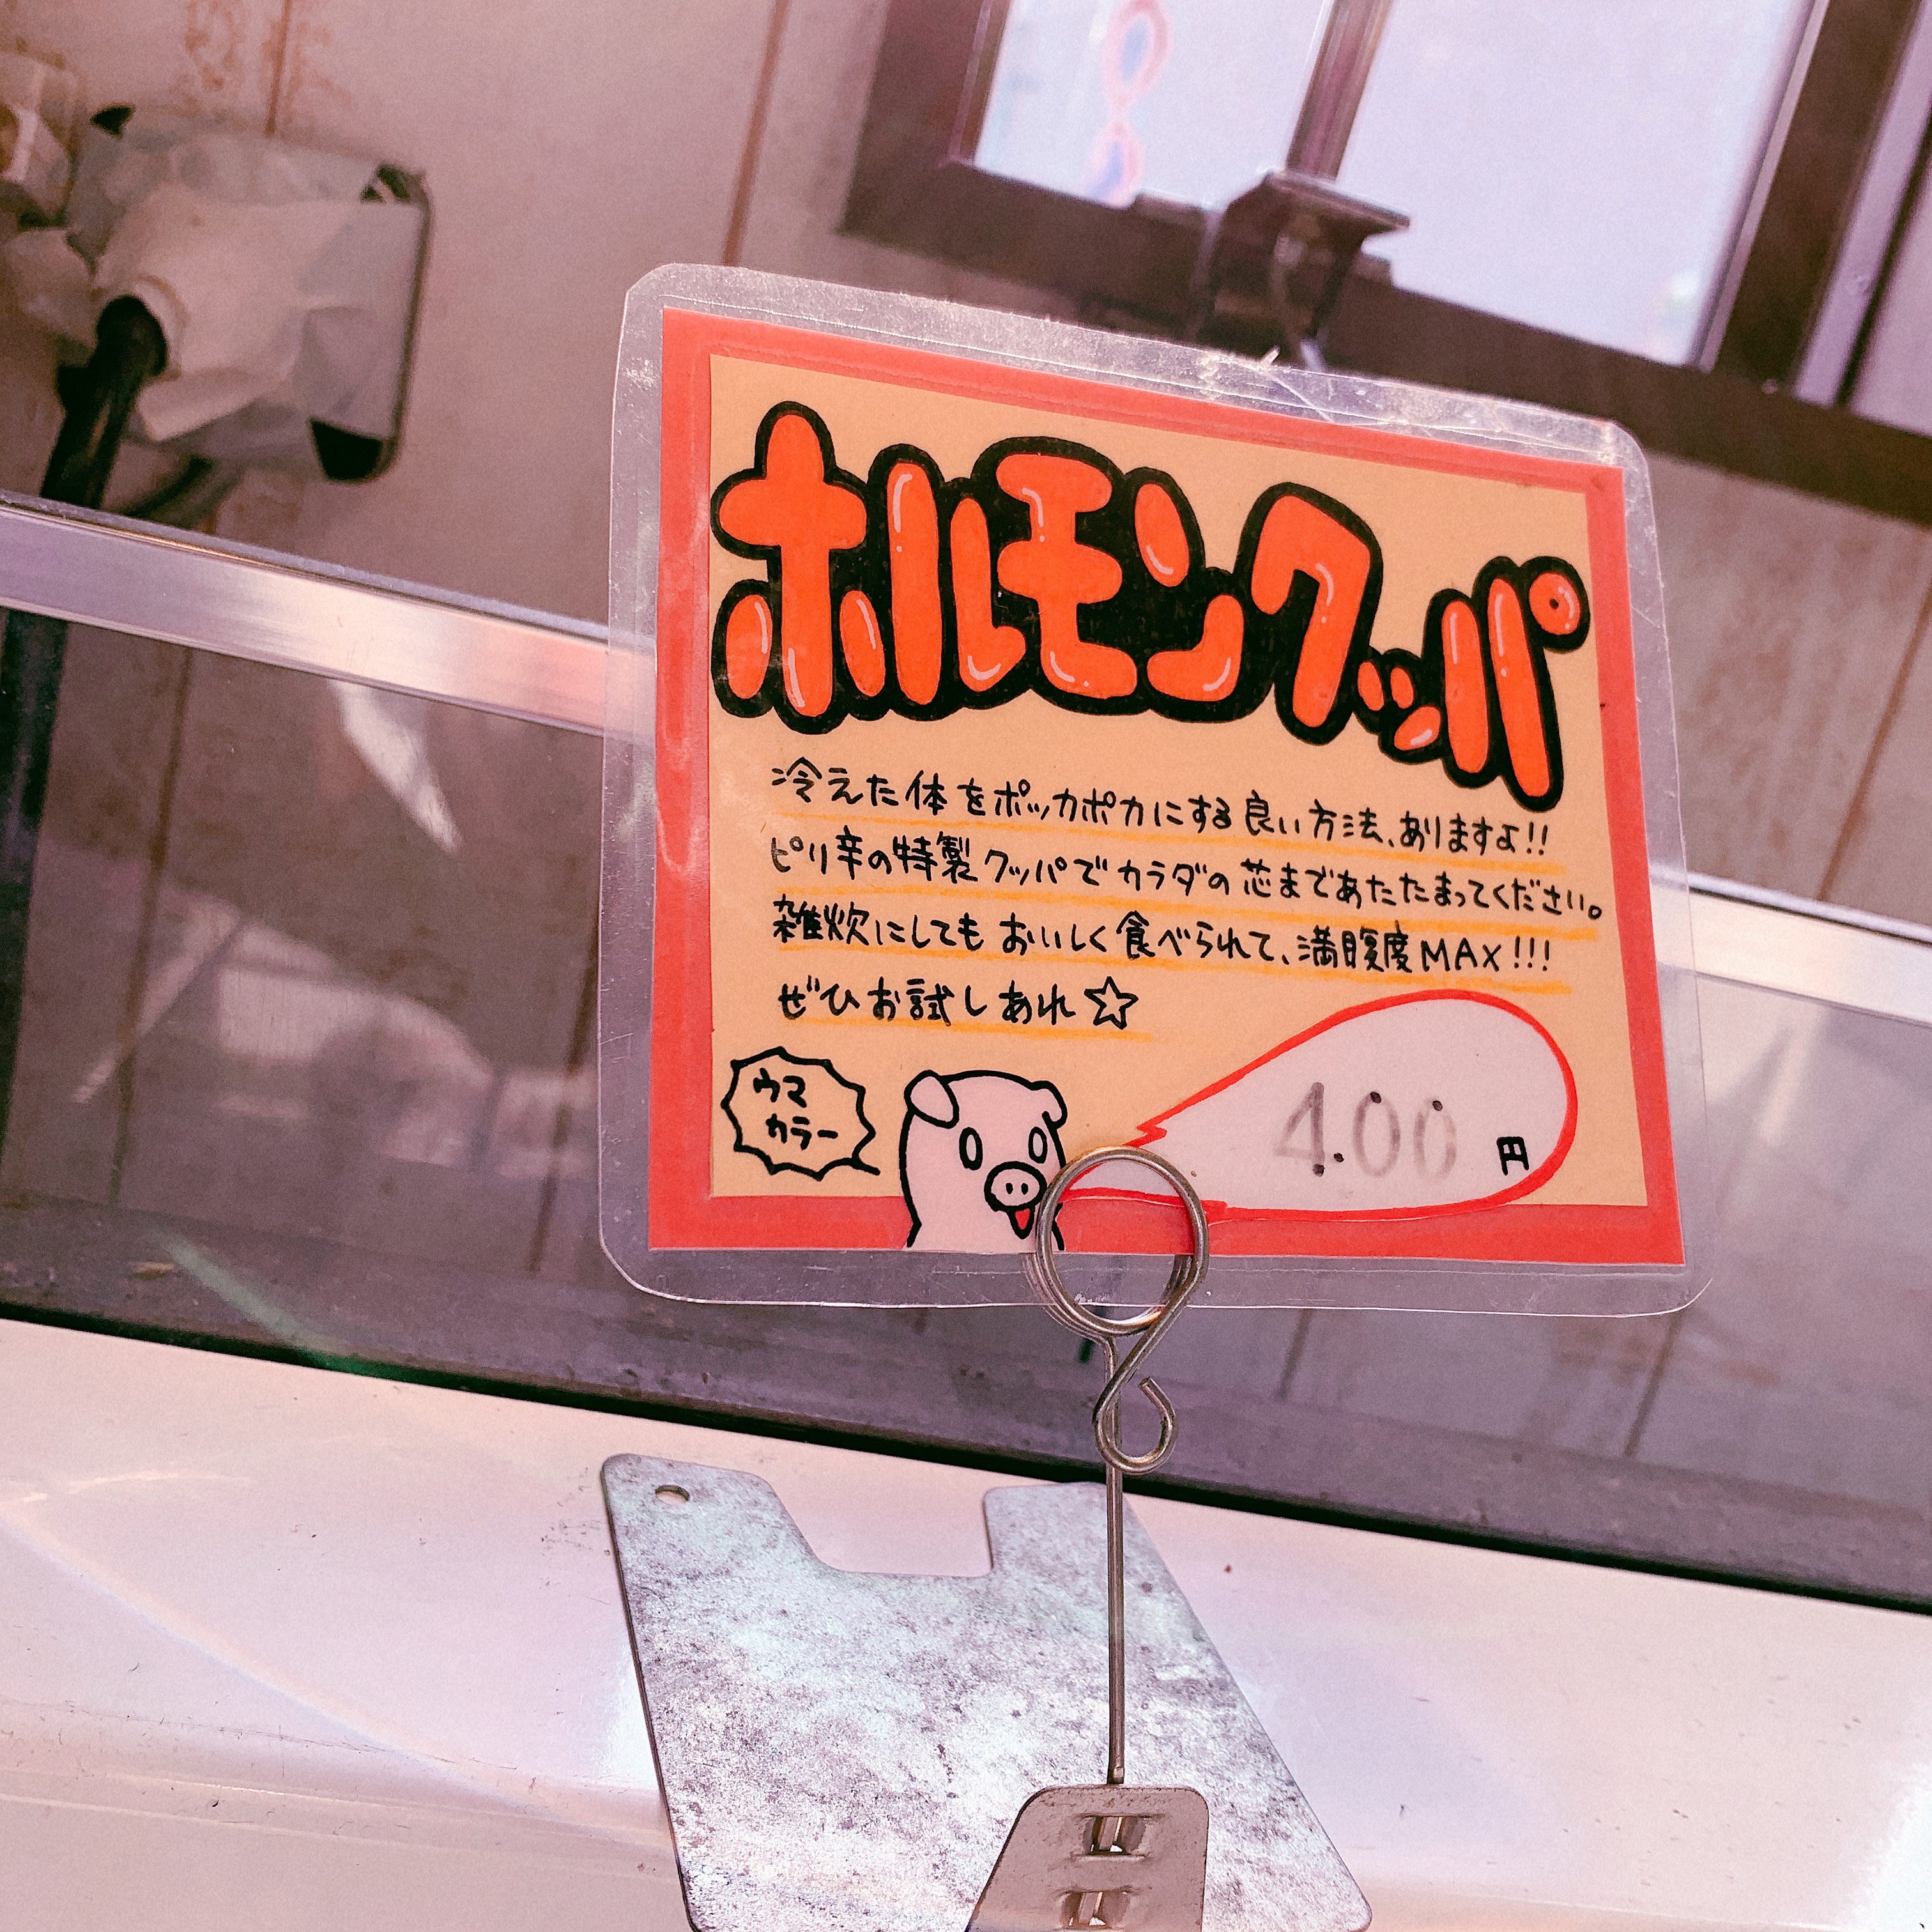 ホルモンクッパ
冷えた体をポッカポカにする良い方法、ありますよ!!
ピリ辛の特製クッパでカラダの芯まであたたまってください。
雑炊にしてもおいしく食べられて、満腹度MAX!!!
ぜひお試しあれ☆
ウマ
カラー
400円